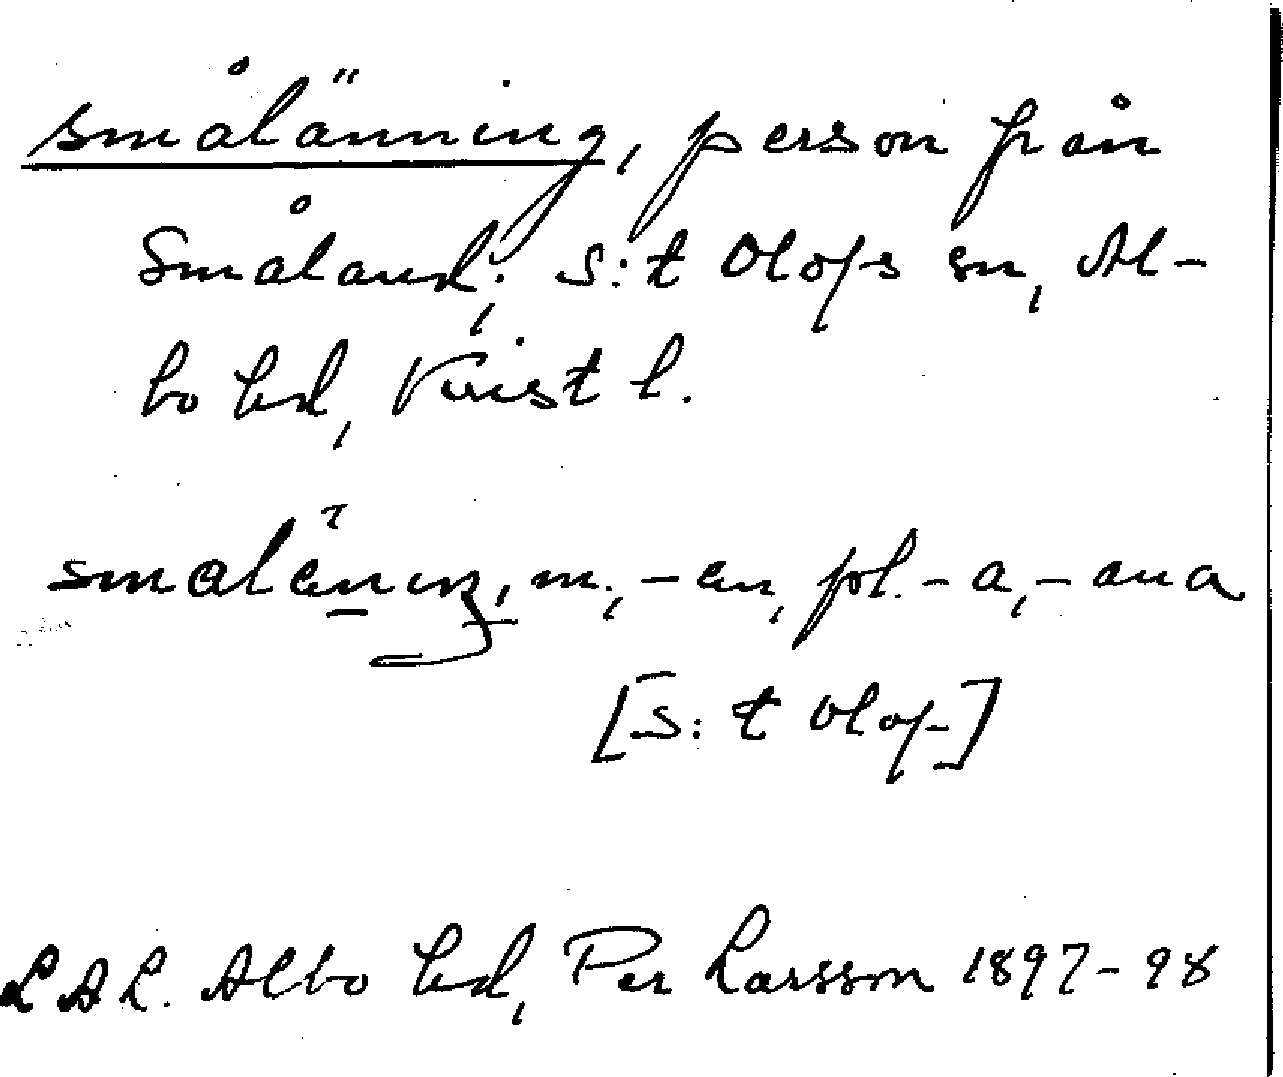 smålänning, person från
Småland; S:t Olofs sn, Al-
bo hd, Krist l.
m., -en, pl. -a, -ana
[S:t Olof]
LAL. Albo hd, Per Larsson 1897-98